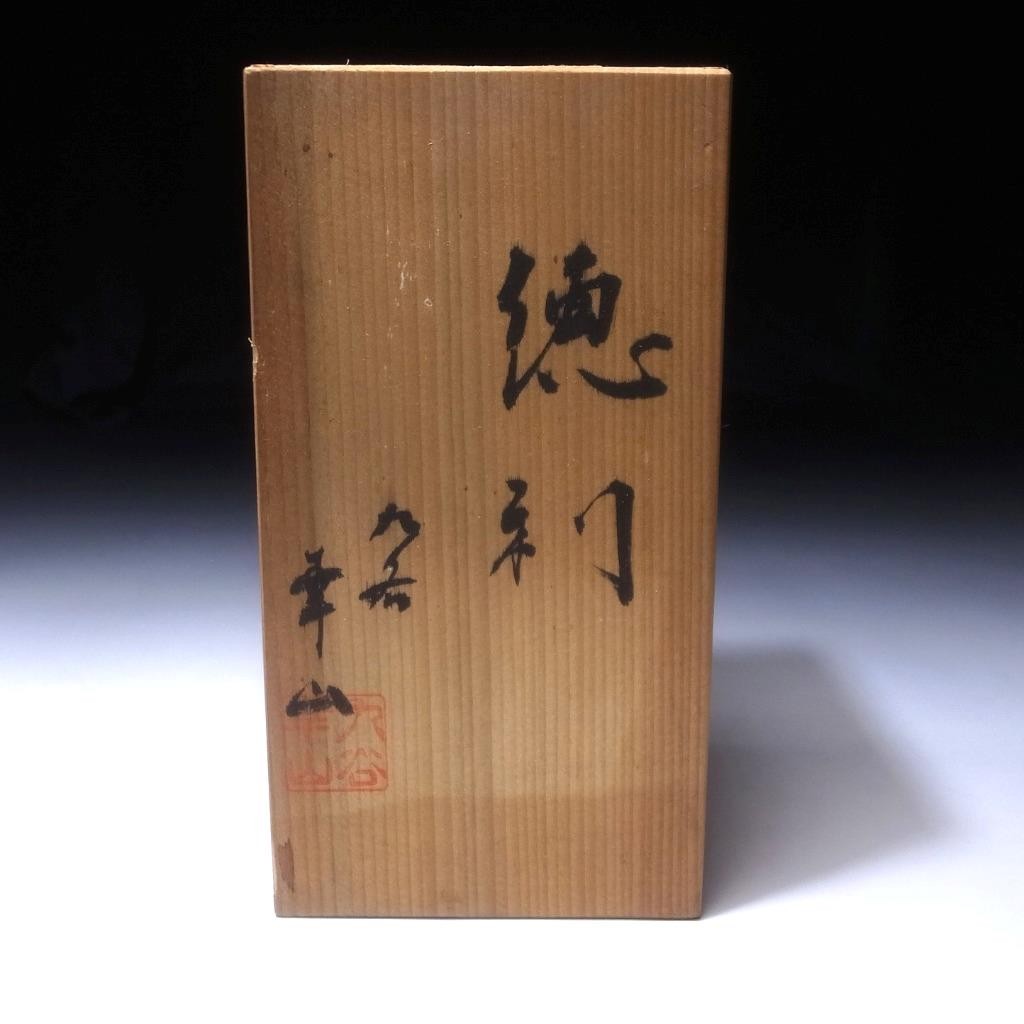 徳利
九谷
華山
九谷
華山